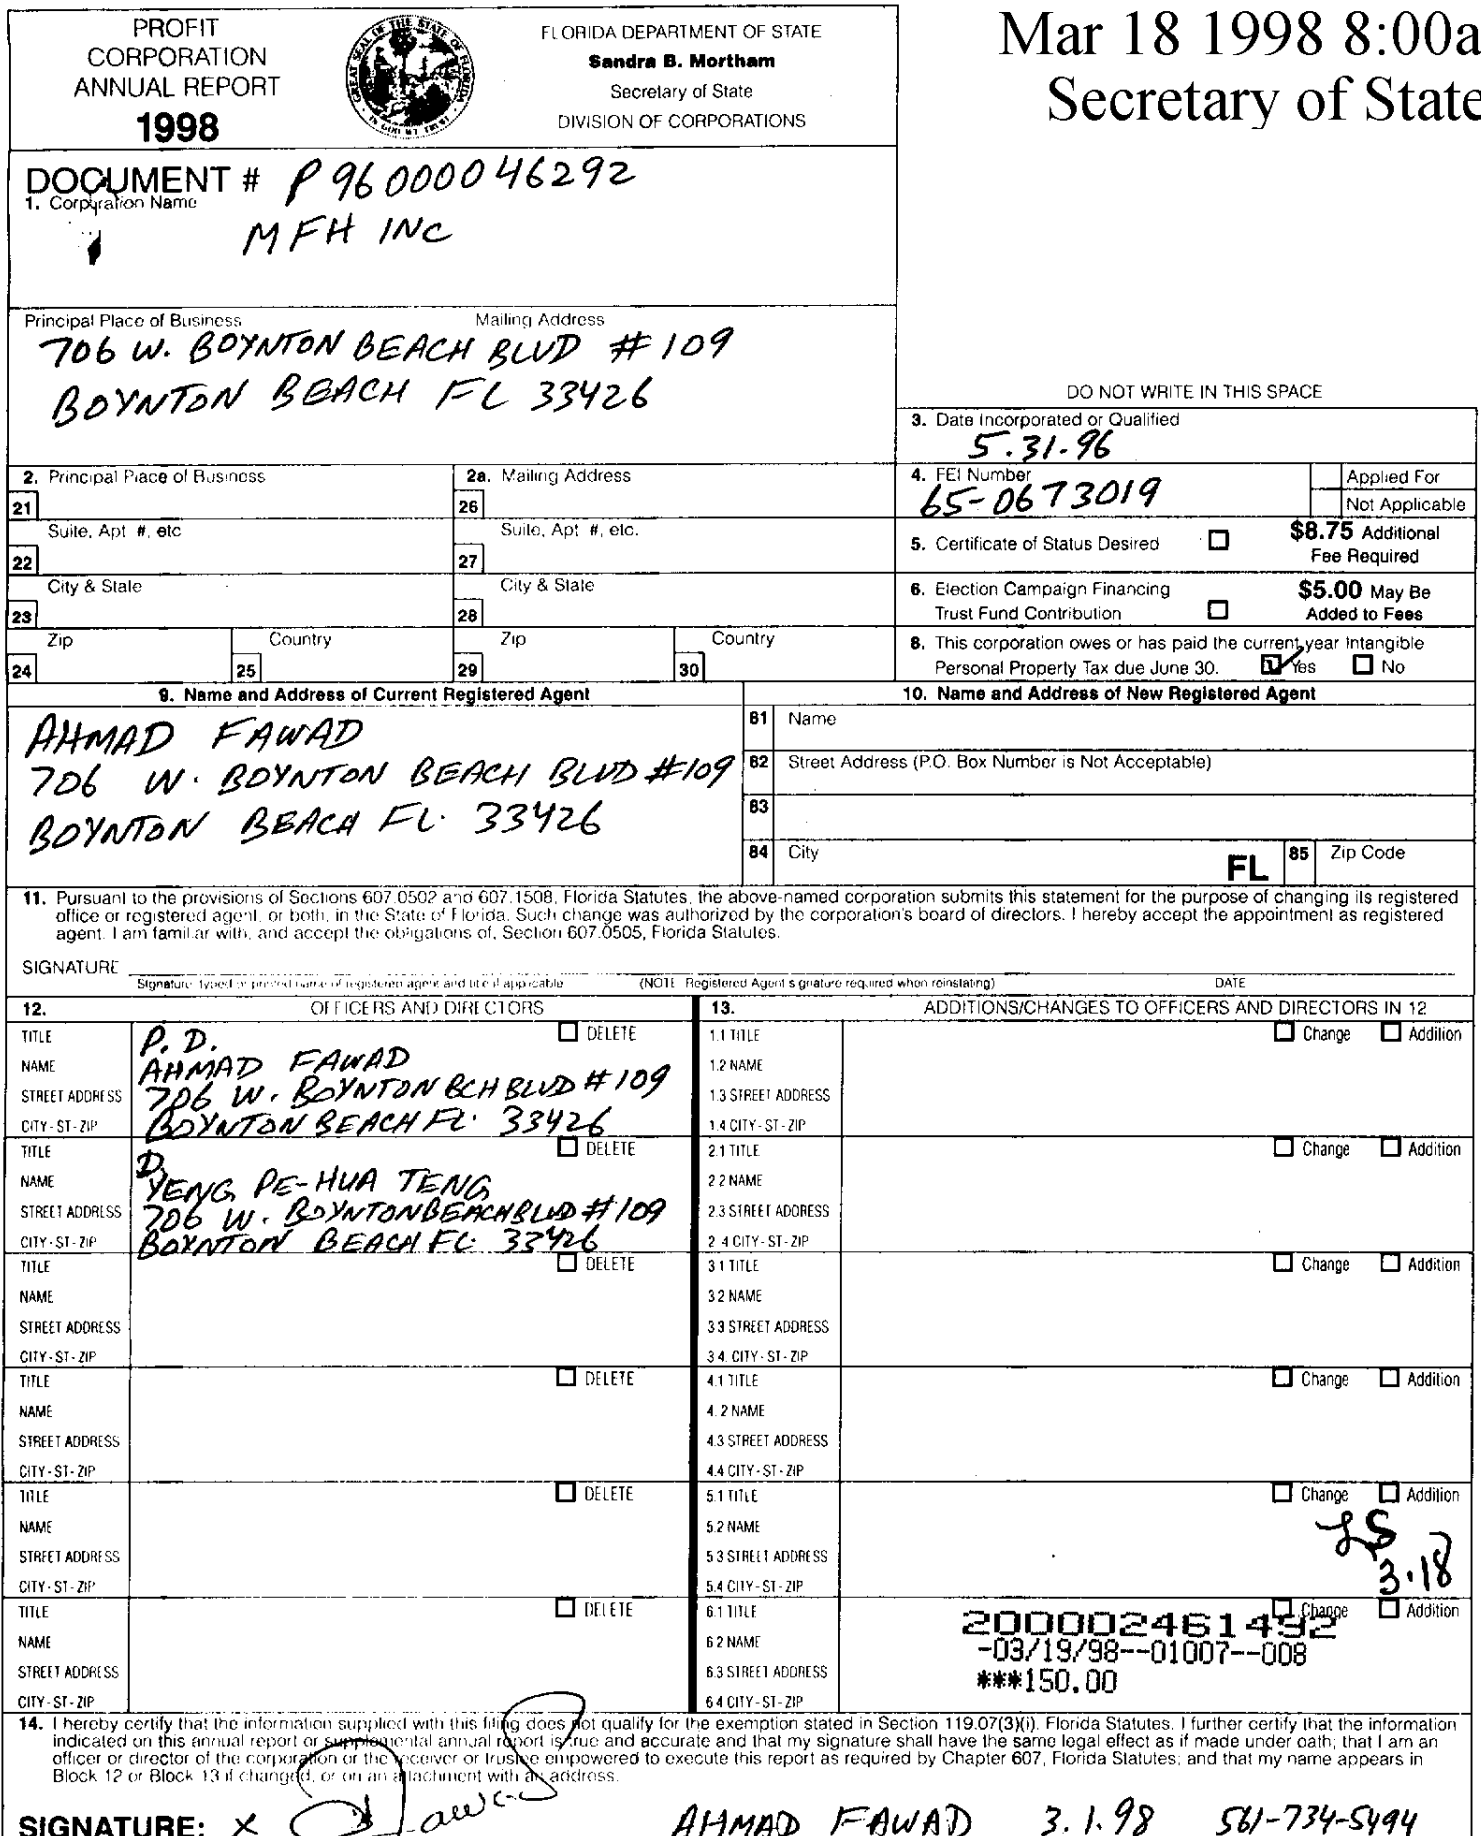 PROFIT
CORPORATION
ANNUAL REPORT
1998
FLORIDA DEPARTMENT OF STATE
Sandra B. Mortham
Secretary of State
DIVISION OF CORPORATIONS
Mar 18 1998 8:00a
Secretary of State
DOCUMENT # P96000046292
1. Corporation Name
MFH INC
Principal Place of Business Mailing Address
706 W. BOYNTON BEACH BLVD #109
BOYNTON BEACH FL 33426
DO NOT WRITE IN THIS SPACE
3. Date Incorporated or Qualified
5.31.96
2. Principal Place of Business 2a. Mailing Address
21 26
4. FEI Number
65-0673019
Applied For
Not Applicable
Suite, Apt #, etc Suite, Apt #, etc.
22 27
5. Certificate of Status Desired $8.75 Additional
Fee Required
City & State City & State
23 28
6. Election Campaign Financing $5.00 May Be
Trust Fund Contribution Added to Fees
Zip Country Zip Country
24 25 29 30
8. This corporation owes or has paid the current year Intangible
Personal Property Tax due June 30. Yes No
9. Name and Address of Current Registered Agent
AHMAD FAWAD
706 W. BOYNTON BEACH BLVD #109
BOYNTON BEACH FL. 33426
10. Name and Address of New Registered Agent
81 Name
82 Street Address (P.O. Box Number is Not Acceptable)
83
84 City FL 85 Zip Code
11. Pursuant to the provisions of Sections 607.0502 and 607.1508, Florida Statutes, the above-named corporation submits this statement for the purpose of changing its registered
office or registered agent, or both, in the State of Florida. Such change was authorized by the corporation's board of directors. I hereby accept the appointment as registered
agent. I am familiar with, and accept the obligations of, Section 607.0505, Florida Statutes.
SIGNATURE
Signature, typed or printed name of registered agent and title if applicable (NOTE Registered Agent signature required when reinstating) DATE
12. OFFICERS AND DIRECTORS
TITLE P. D. DELETE
NAME AHMAD FAWAD
STREET ADDRESS 706 W. BOYNTON BCH BLVD #109
CITY-ST-ZIP BOYNTON BEACH FL. 33426
TITLE D DELETE
NAME YENG, PE-HUA TENG
STREET ADDRESS 706 W. BOYNTON BEACH BLVD #109
CITY-ST-ZIP BOYNTON BEACH FL. 33426
TITLE DELETE
NAME
STREET ADDRESS
CITY-ST-ZIP
TITLE DELETE
NAME
STREET ADDRESS
CITY-ST-ZIP
TITLE DELETE
NAME
STREET ADDRESS
CITY-ST-ZIP
TITLE DELETE
NAME
STREET ADDRESS
CITY-ST-ZIP
13. ADDITIONS/CHANGES TO OFFICERS AND DIRECTORS IN 12
1.1 TITLE Change Addition
1.2 NAME
1.3 STREET ADDRESS
1.4 CITY-ST-ZIP
2.1 TITLE Change Addition
2.2 NAME
2.3 STREET ADDRESS
2.4 CITY-ST-ZIP
3.1 TITLE Change Addition
3.2 NAME
3.3 STREET ADDRESS
3.4. CITY-ST-ZIP
4.1 TITLE Change Addition
4.2 NAME
4.3 STREET ADDRESS
4.4 CITY-ST-ZIP
5.1 TITLE Change Addition
5.2 NAME
5.3 STREET ADDRESS
5.4 CITY-ST-ZIP
3.18
6.1 TITLE Change Addition
6.2 NAME
6.3 STREET ADDRESS
6.4 CITY-ST-ZIP
200002461492
-03/19/98--01007--008
***150.00
14. I hereby certify that the information supplied with this filing does not qualify for the exemption stated in Section 119.07(3)(i), Florida Statutes. I further certify that the information
indicated on this annual report or supplemental annual report is true and accurate and that my signature shall have the same legal effect as if made under oath; that I am an
officer or director of the corporation or the receiver or trustee empowered to execute this report as required by Chapter 607, Florida Statutes; and that my name appears in
Block 12 or Block 13 if changed, or on an attachment with an address.
SIGNATURE: X Fawad AHMAD FAWAD 3.1.98 561-734-5494